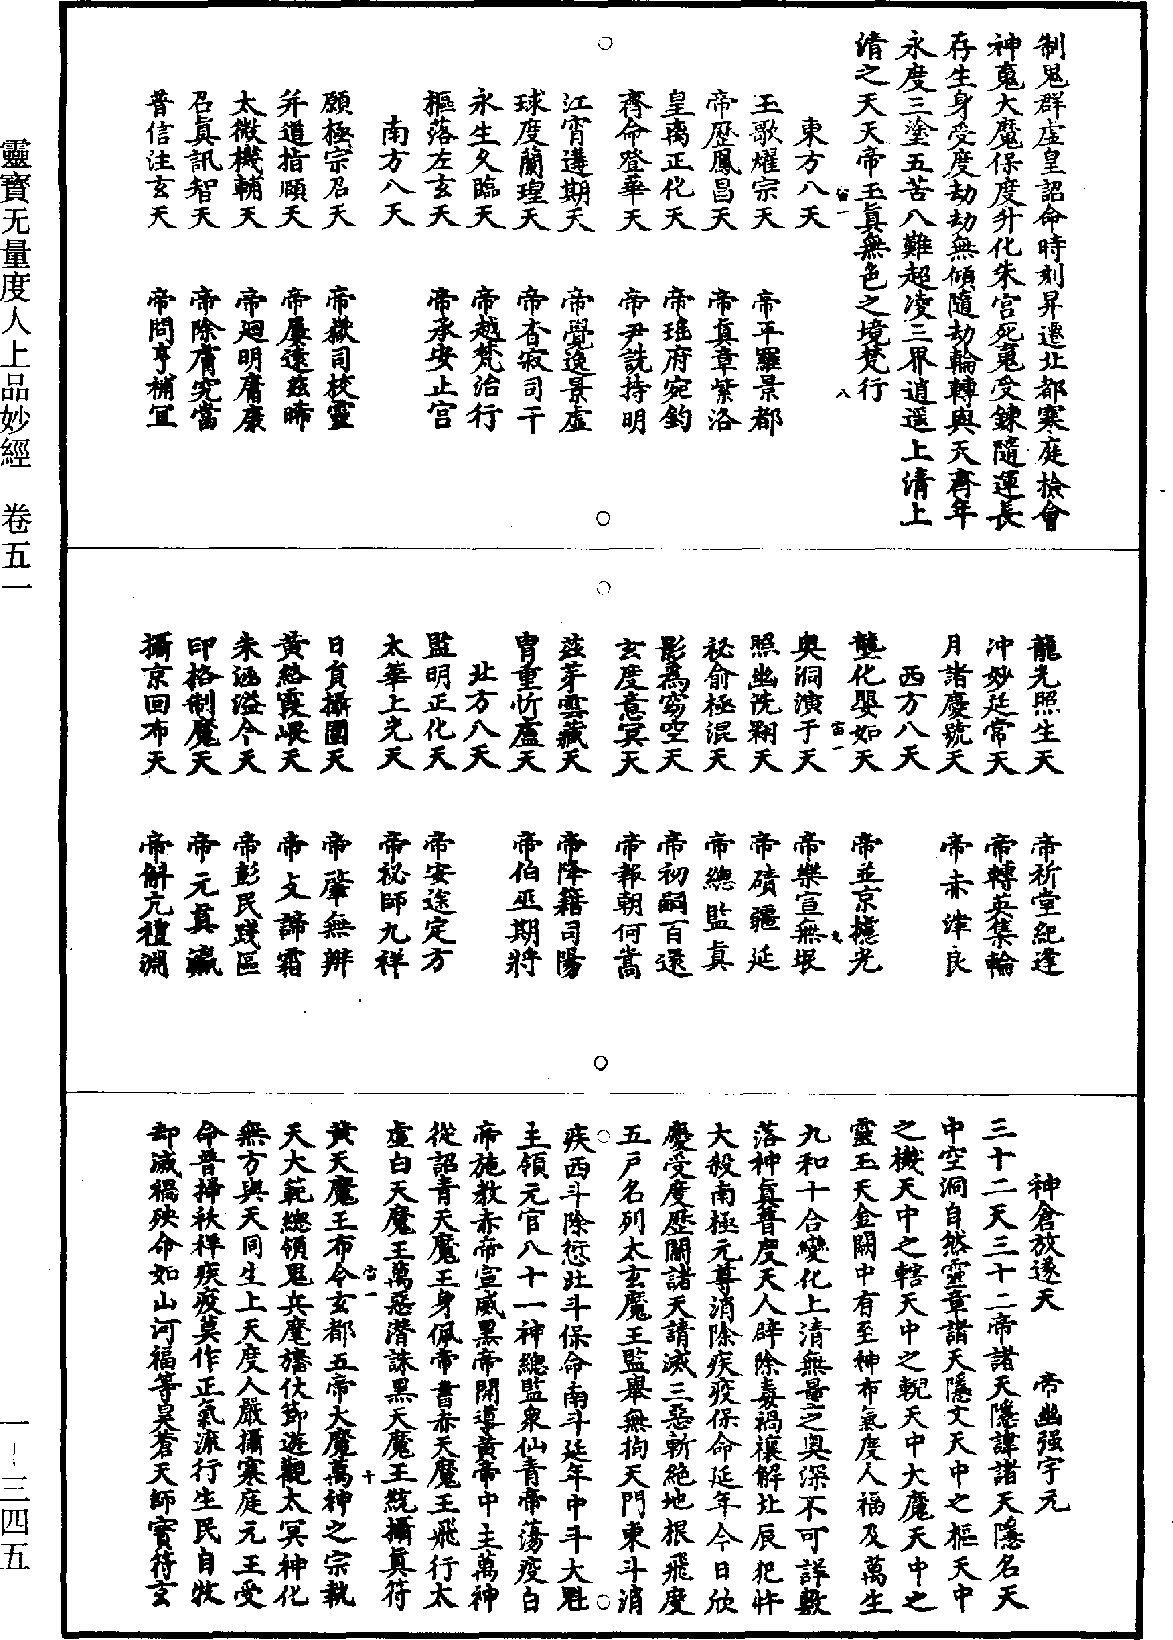 制鬼群虛皇詔命時刻昇遷北都寒庭檢會
神鬼大魔保度升化朱宮死鬼受鍊隨運長
存生身受度劫劫無傾隨劫輪轉與天齊年
永度三塗五苦八難超凌三界逍遥上清上
清之天天帝玉眞無色之境梵行
東方八天
玉歌燿宗天 帝平羅景都
帝歷鳳昌天 帝眞章紫洛
皇离正化天 帝瑤府宛鈞
齊命登華天 帝尹詵持明
江霄遘期天 帝覺逸景虛
球度蘭瑝天 帝杳寂司干
永生久臨天 帝越梵治行
樞落左玄天 帝承安止宮
南方八天
願極宗召天 帝嶽司校靈
并道指頤天 帝屢遠茲晞
太微機輔天 帝廻明膺康
召眞訊智天 帝除膺究當
普信注玄天 帝問亨補宜
龍光照生天 帝祈堂紀逢
沖妙廷常天 帝轉英集輪
月諸慶號天 帝赤津良
西方八天
龔化嬰如天 帝並京攄光
奥洞演于天 帝樂宣無垠
照幽洗翔天 帝磧疆延
秘俞極混天 帝總監眞
影爲窈空天 帝初嗣百還
玄度意冥天 帝報朝何嵩
茲芽雲藏天 帝降籍司陽
冑重忻盧天 帝伯巫期將
北方八天
監明正化天 帝安途定方
太華上光天 帝祕師九祥
日負攝圖天 帝肇無辦
黄絡霞嵎天 帝攴諦霜
朱涵溢令天 帝彭民踐區
印格制魔天 帝元真瀛
攝京回布天 帝解亢禮淵
神倉放遂天 帝幽强宇元
三十二天三十二帝諸天隱諱諸天隱名天
中空洞自然靈章諸天隱文天中之樞天中
之機天中之轄天中之輗天中大魔天中之
靈玉天金闕中有至神布氣度人福及萬生
九和十合變化上清無量之奥深不可詳敷
落神眞普度天人辟除毒禍禳解北辰犯忤
大殺南極元尊消除疾疫保命延年今日欣
慶受度歷關諸天請滅三惡斬絶地根飛度
五戸名列太玄魔王監舉無拘天門東斗消
疾西斗除愆北斗保命南斗延年中斗大魁
主領元官八十一神總監衆仙青帝蕩疫白
帝施教赤帝宣威黑帝開導黄帝中主萬神
從詔青天魔王身佩帝書赤天魔王飛行太
虛白天魔王萬惡潛誅黑天魔王統攝眞符
黄天魔王布令玄都五帝大魔萬神之宗執
天大範總領鬼兵麾旛仗節遊觀太冥神化
無方與天同生上天度人嚴攝寒庭元王受
命普掃秋祥疾疫莫作正氣流行生民自牧
却滅禍殃命如山河福等昊蒼天師寳符玄
靈寳无量度人上品妙經 卷五一
一—三四五